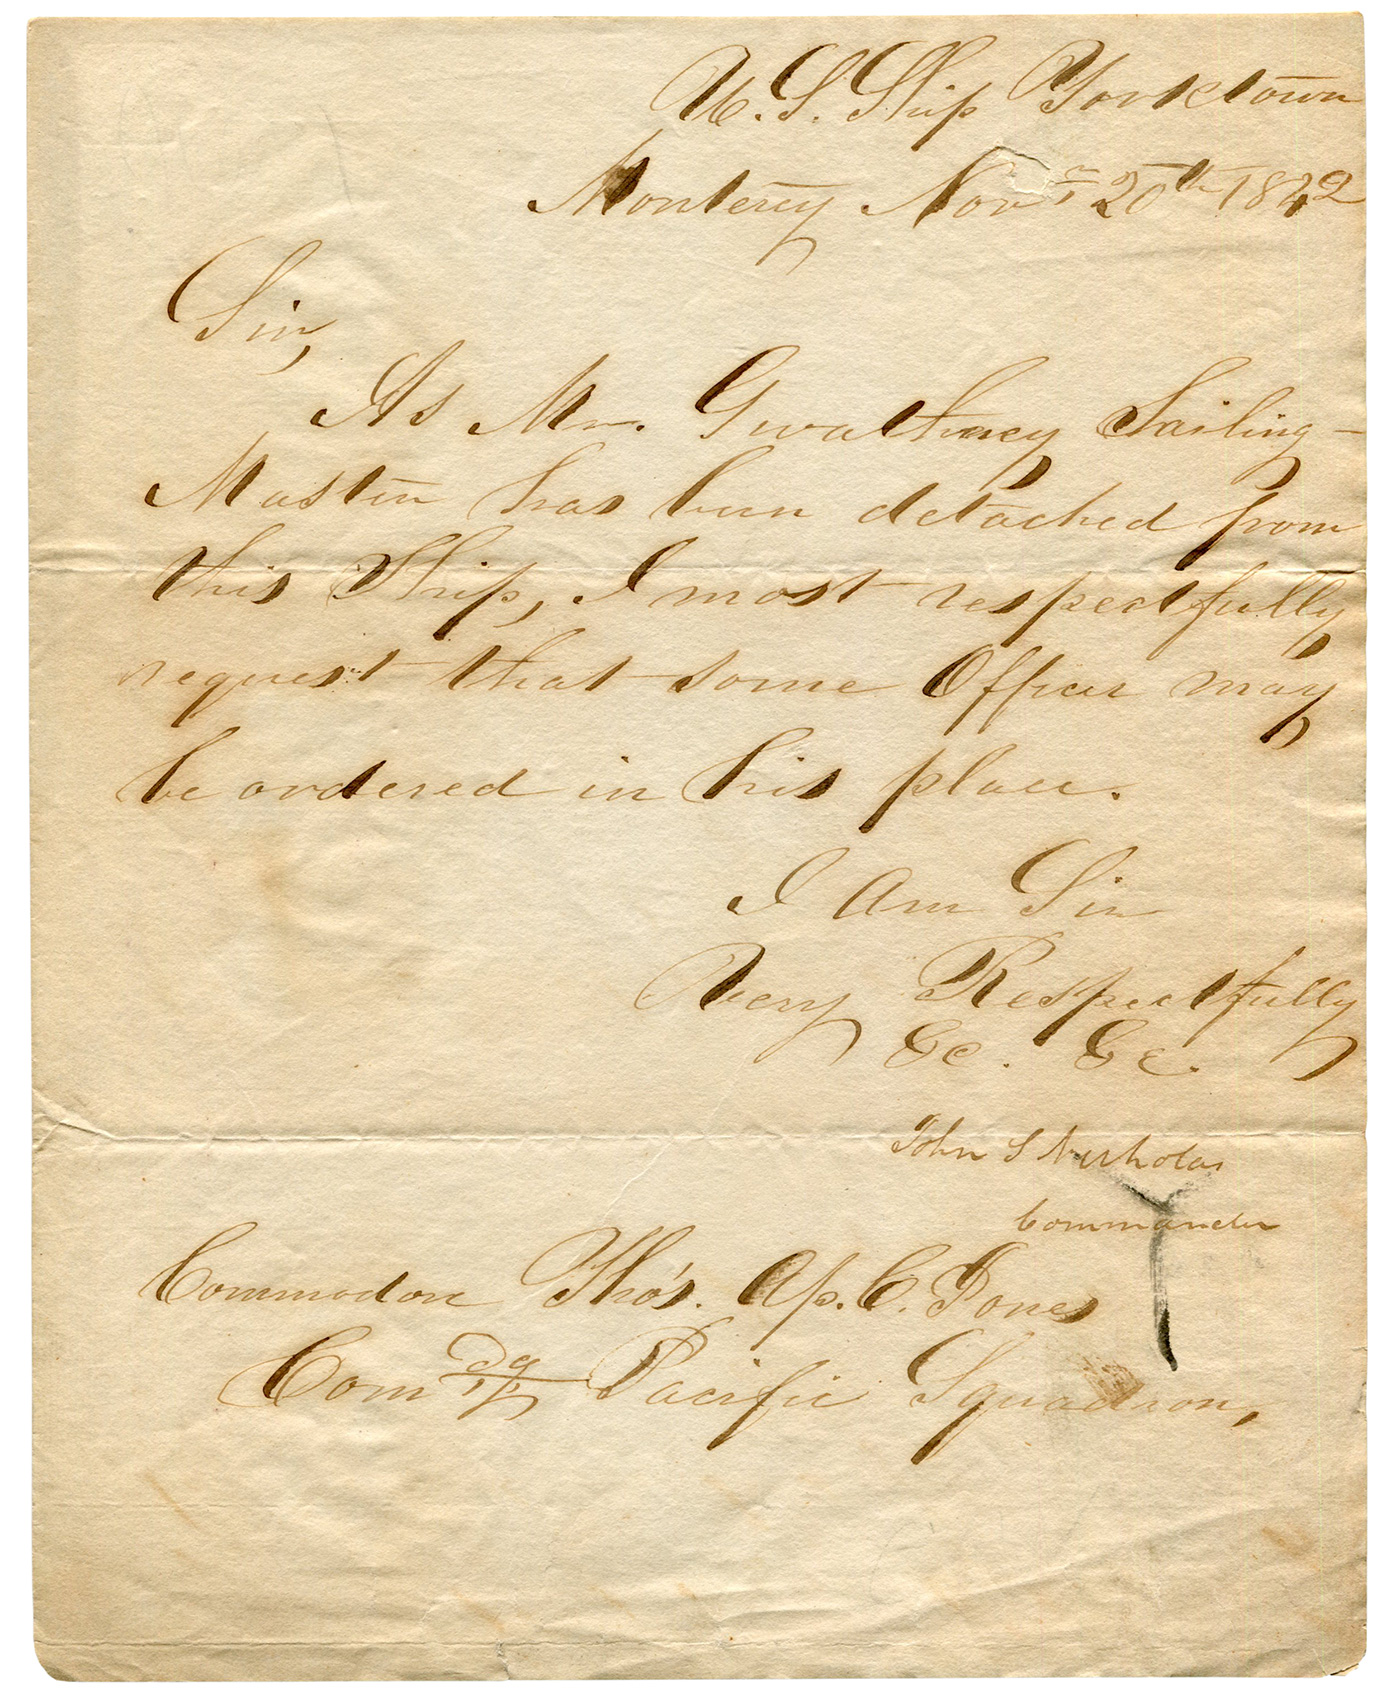 U.S. Ship Yorktown
Monterey Novr 20th 1842
Sir,
As Mr. Gwathmey Sailing-
Master has been detached from
this Ship, I most respectfully
request that some Officer may
be ordered in his place.
I Am Sir
Very Respectfully
&c. &c.
John S Nicholas
Commander
Commodore Thos. Ap. C. Jones
Comdg Pacific Squadron,